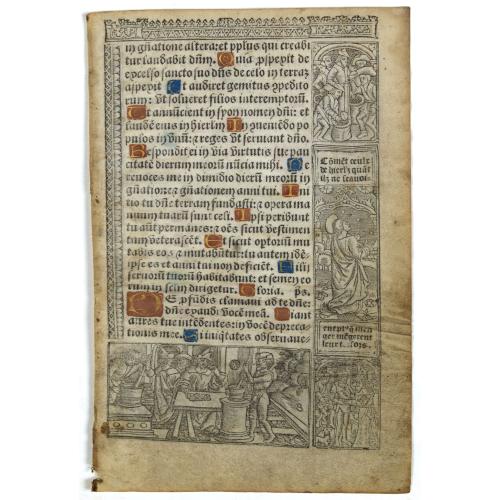 in gñatione altera: et pplus qui creabi
tur laudabit dñm. Quia pspexit de
excelso sancto suo: dñs de celo in terrã
aspexit Et audiret gemitus cõpedito
rum: vt solueret filios interemptorũ.
Et annũcient in syon nomen dñi: et
laudẽ eius in hierlm In cõueniẽdo po
pulos in vnũ: & reges vt seruiant dño.
Respondit ei in via virtutis sue pau
citatẽ dierum meorũ nũcia mihi. Ne
reuoces me in dimidio dierũ meorũ in
gñatione & gñationem anni tui. Ini
tio tu dñe terram fundasti: & opera ma
nuum tuarũ sunt celi. Ipsi peribunt
tu aut permanes: & oẽs sicut vestimen
tum veterascẽt. Et sicut optoriũ mu
tabis eos & mutabũtur: tu autem idẽ
ipse es et anni tui non deficiẽt. Filii
seruorũ tuorũ habitabunt: et semen eo
rum in sclm dirigetur. Gloria. ps.
De pfũdis clamaui ad te dñe:
dñe exaudi vocẽ meã. Fiant
aures tue intẽdentes: in vocẽ depreca
tionis mee. Si iniqtates obserua ue
Cõmẽt ceulx
de hierlm